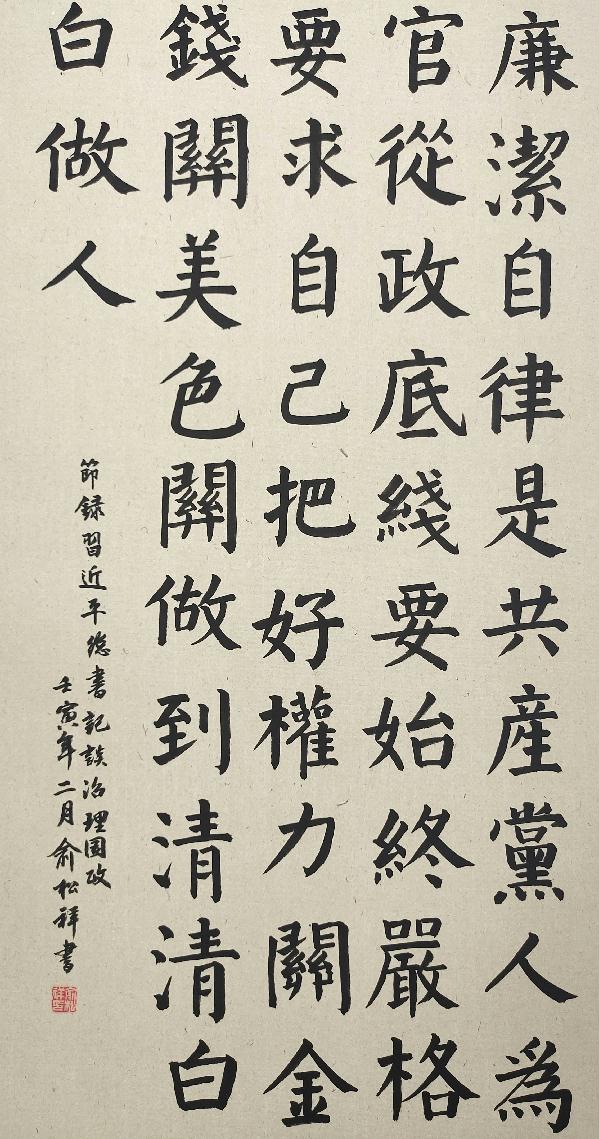 廉潔自律是共産黨人為
官從政底綫要始終嚴格
要求自己把好權力關金
錢關美色關做到清清白
白做人
節録習近平總書記談治理國政
壬寅年二月俞松祥書